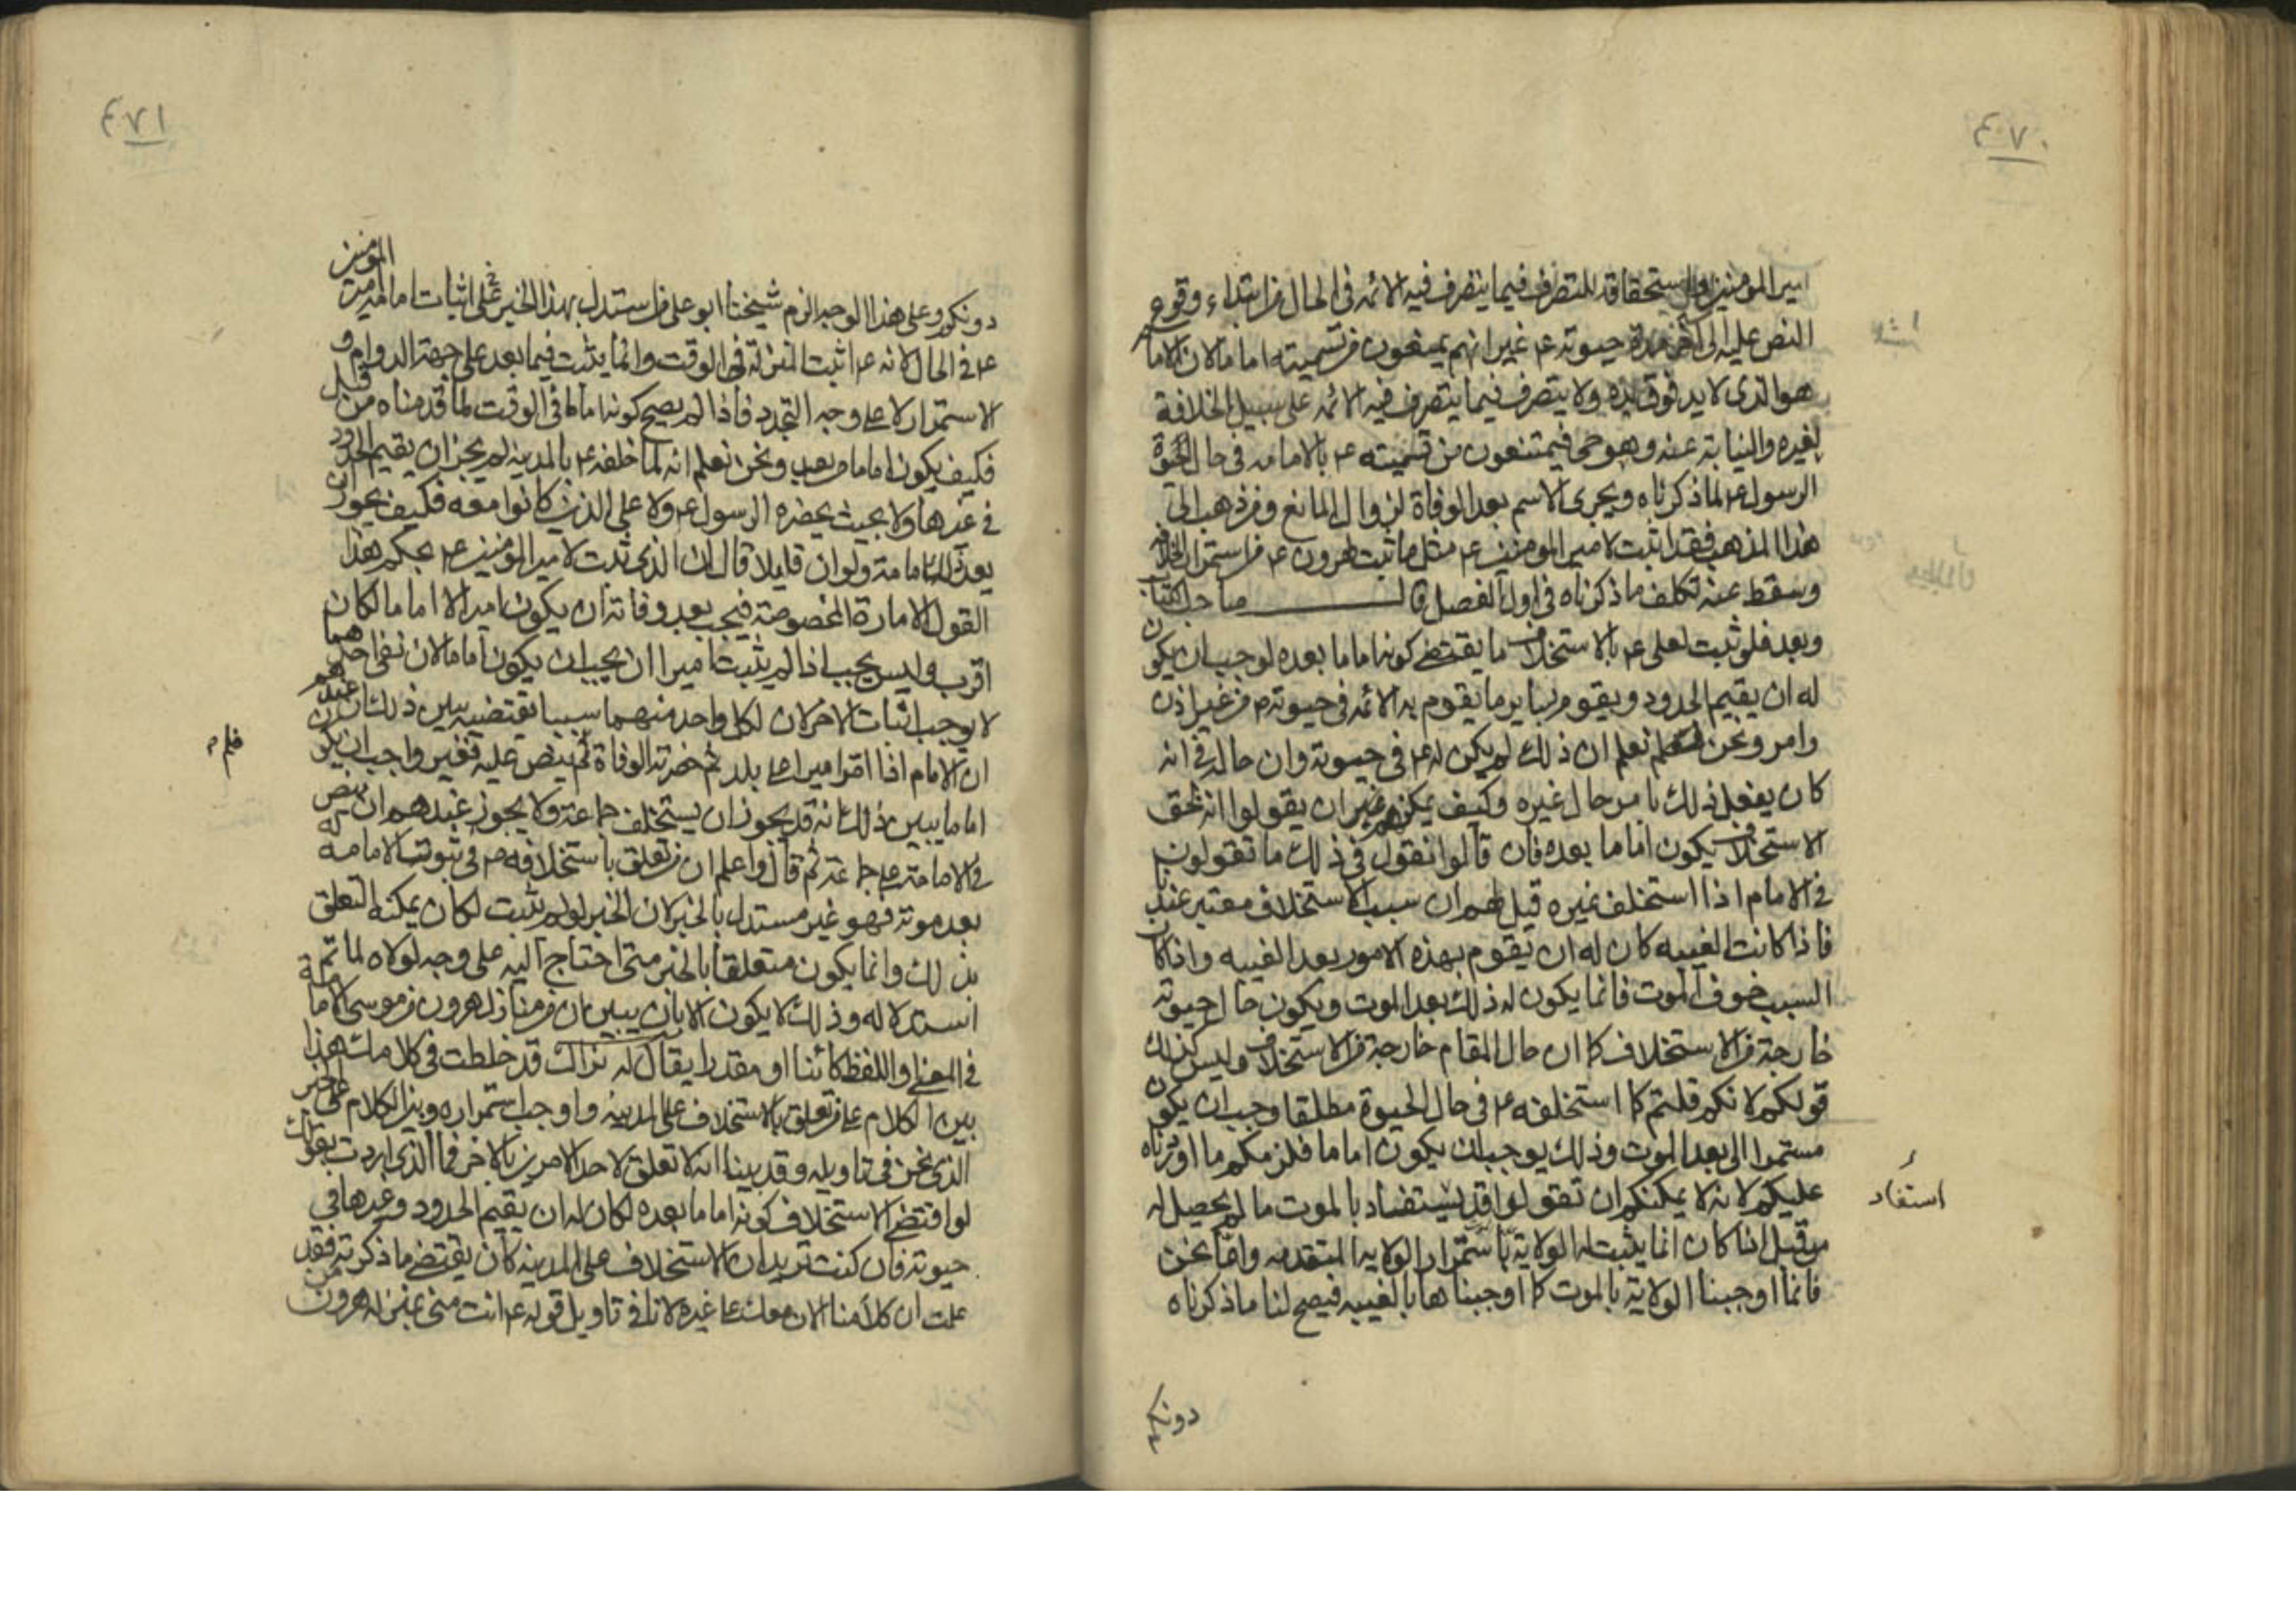 ٤٧٠
امير المومنين واستحقاقه للتصرف فيما يتصرف فيه الائمه في الحال من ابتداء وقوع
النص عليه الى اخر مدة حيوته ع غير انهم يمنعون من تسميته اماما لان الامام
هو الذى لا يد فوق يده ولا يتصرف فيما يتصرف فيه الائمه على سبيل الخلافة
لغيره والنيابة عنه وهو حى فيمتنعون من تسميته ع بالامامه فى حال حيوة
الرسول ع لما ذكرناه ويجرى الاسم بعد الوفاة لزوال المانع ومن ذهب الى
هذا المذهب فقد اثبت لامير المومنين ع مثل ما ثبت لهرون ع من استمرار الخلافه
وسقط عنه تكلف ما ذكرناه فى اول الفصل قال صاحب الكتاب
وبعد فلو ثبت لعلى ع بالاستخلاف ما يقتضى كونه اماما بعده لوجب ان يكون
له ان يقيم الحدود ويقوم بساير ما يقوم به الائمه فى حيوته ص من غير اذن
وامر ونحن نعلم ان ذلك لم يكن له ع فى حيوته وان حاله فى انه
كان يفعل ذلك بامر حال غيره وكيف يمكن غيرهم ان يقولوا انه بحق
الاستخلاف يكون اماما بعده فان قالوا نقول فى ذلك ما تقولون
فى الامام اذا استخلف غيره قيل لهم ان سبب الاستخلاف معتبر عندنا
فاذا كانت الغيبه كان له ان يقوم بهذه الامور بعد الغيبه واذا كان
السبب خوف الموت فانما يكون له ذلك بعد الموت ويكون حال حيوته
خارجة من الاستخلاف كما ان حال المقام خارجة من الاستخلاف وليس كذلك
قولكم لانكم قلتم كما استخلفه ع فى حال الحيوة مطلقا وجب ان يكون
مستمرا الى بعد الموت وذلك يوجب ان يكون اماما فلزمكم ما اوردناه
عليكم لانه لا يمكنكم ان تقولوا قد يستفاد بالموت ما لم يحصل له
من قبل اذا كان انما يثبت له الولاية باستمرار الولايه المتقدمه واما نحن
فانما اوجبنا الولاية بالموت كما اوجبناها بالغيبه فيصح لنا ما ذكرناه
استفاد
دونكم
٤٧١
دونكم وعلى هذا الوجه الزم شيخنا ابو على من استدل بهذا الخبر على اثبات امامه امير المومنين
ع فى الحال لانه ع اثبت المنزلة فى الوقت وانما يثبت فيما بعد على جهة الدوام و
الاستمرار لا على وجه التجدد فاذا لم يصح كونه اماما فى الوقت لما قدمناه من قبل
فكيف يكون اماما من بعد ونحن نعلم انه لما خلفه ع بالمدينه لم يجز ان يقيم الحدود
فى غيرها ولا بحيث يحضره الرسول ع ولا على الذين كانوا معه فكيف يجوز ان
يعد ذلك امامة ولو ان قايلا قال ان الذى ثبت لامير المومنين ع بحكم هذا
القول الامارة المخصوصة فيجب بعد وفاته ان يكون اميرا لا اماما لكان
اقرب وليس يجب اذا لم يثبت اميرا ان يجب ان يكون اماما لان نفى احدهما
لا يوجب اثبات الاخر لان لكل واحد منهما سببا يقتضيه يبين ذلك ان عندهم
ان الامام اذا اقر اميرا على بلد ثم حضرته الوفاة لم ينص عليه فغير واجب ان يكون
اماما يبين ذلك انه قد يجوز ان يستخلف جماعة ولا يجوز عندهم ان ينص
فى الامامة على جماعة ثم قال واعلم ان من تعلق باستخلافه ص فى ثبوت الامامه له
بعد موته فهو غير مستدل بالخبر لان الخبر لو لم يثبت لكان يمكنه التعلق
بذلك وانما يكون متعلقا بالخبر متى احتاج اليه على وجه لولاه لما تم
استدلاله وذلك لا يكون الا بان يبين ان من منازل هرون من موسى الامامة
فى المعنى واللفظ كائنا او مقدرا يقال له نراك قد خلطت فى كلامك هذا
بين الكلام على من تعلق بالاستخلاف على المدينه واوجب استمراره وبين الكلام على الخبر
الذى نحن فى تاويله وقد بينا انه لا تعلق لاحد الامرين بالاخر فما الذى اردت بقولك
لو اقتضى الاستخلاف كونه اماما بعده لكان له ان يقيم الحدود وغيرها فى
حيوته فان كنت تريد ان الاستخلاف على المدينه كان يقتضى ما ذكرته فقد
علمت ان كلامنا الان معك على غيره لانا فى تاويل قوله ع انت منى بمنزله هرون من
فلم